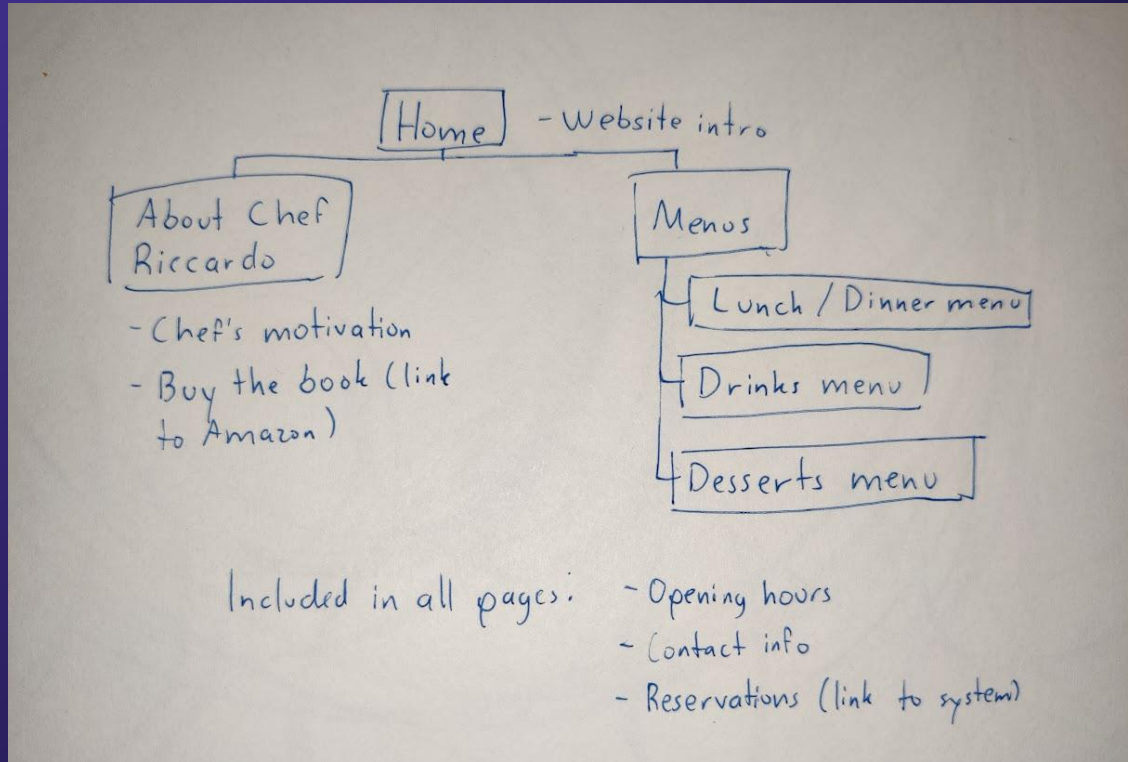 Home - Website intro
About Chef
Riccardo
- Chef's motivation
- Buy the book (link
to Amazon)
Menus
Lunch / Dinner menu
Drinks menu
Desserts menu
Included in all pages:
- Opening hours
- Contact info
- Reservations (link to system)